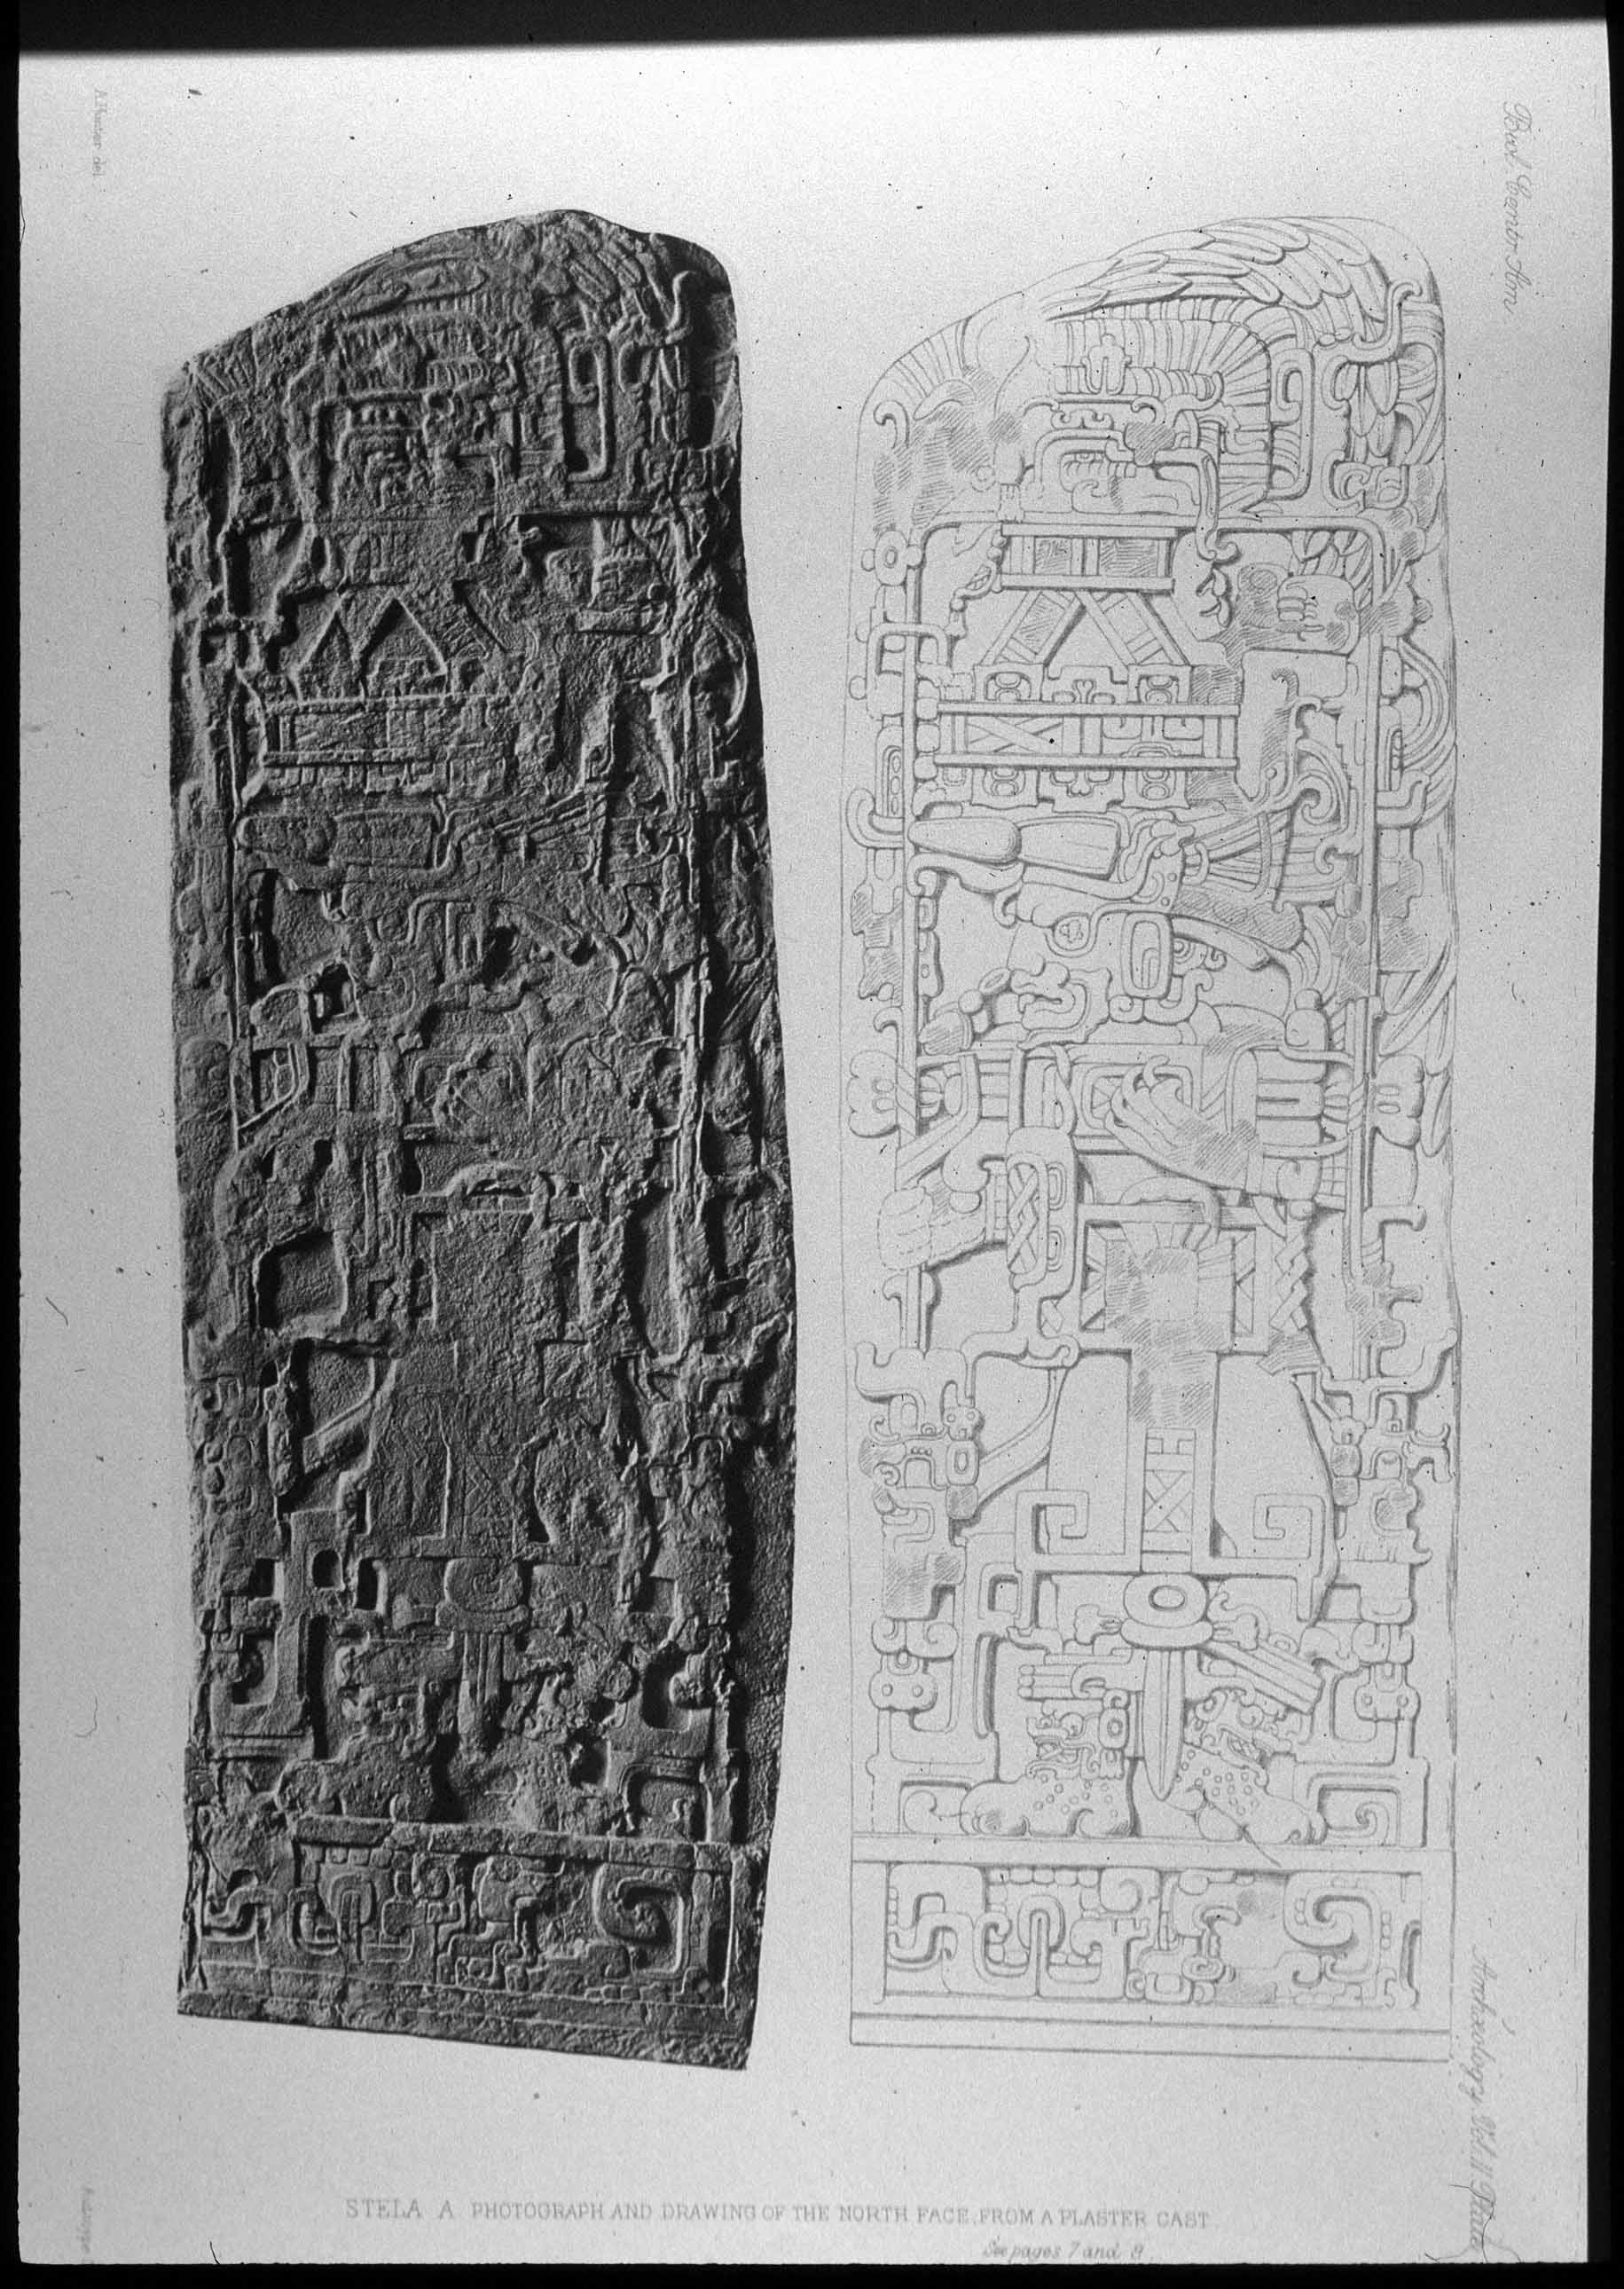 Biol. Centr. Am.
Archæology Vol. II Plate
A. Hunter del.
STELA A PHOTOGRAPH AND DRAWING OF THE NORTH FACE, FROM A PLASTER CAST
See pages 7 and 8.